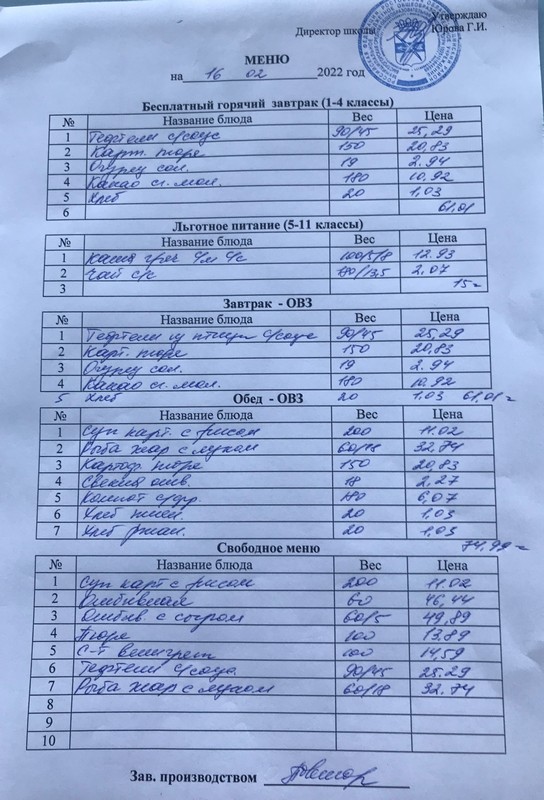 Утверждаю
Директор школы Юрова Г.И.
МЕНЮ
на 16 02 2022 год
Бесплатный горячий завтрак (1-4 классы)
№ Название блюда Вес Цена
1 Тефтели с/соус 90/45 25,29
2 Карт. пюре 150 20,83
3 Огурец сол. 19 2.94
4 Какао сг. мол. 180 10,92
5 Хлеб 20 1,03
6 61,01
Льготное питание (5-11 классы)
№ Название блюда Вес Цена
1 Каша греч 12.93
2 Чай с/с 180/13,5 2,07
3 15=
Завтрак - ОВЗ
№ Название блюда Вес Цена
1 Тефтели из птицы с/соус 90/45 25,29
2 Карт. пюре 150 20,83
3 Огурец сол. 19 2.94
4 Какао сг. мол. 180 10,92
5 Хлеб 20 1.03 61,01=
Обед - ОВЗ
№ Название блюда Вес Цена
1 Суп карт. с рисом 200 11.02
2 Рыба жар с луком 60/18 32.74
3 Картоф. пюре 150 20,83
4 Свекла 18 2,27
5 Компот с/фр. 180 6,07
6 Хлеб пшен. 20 1.03
7 Хлеб ржан. 20 1,03
74,99=
Свободное меню
№ Название блюда Вес Цена
1 Суп карт с рисом 200 11.02
2 Отбивная 60 46,44
3 Отбив. с сыром 60/5 49,89
4 Пюре 100 13.89
5 С-т винегрет 100 14,59
6 Тефтели с/соус. 90/45 25.29
7 Рыба жар с луком 60/18 32.74
8
9
10
Зав. производством